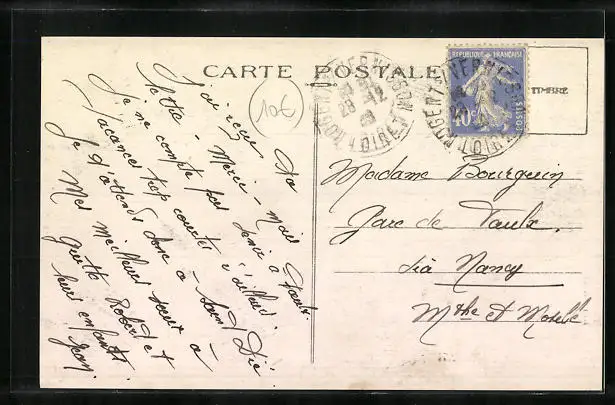 CARTE POSTALE
TIMBRE
RÉPUBLIQUE FRANÇAISE
40c
POSTES
NOGENT-S-VERNISSON
LOIRET
28-12
10€
J'ai reçu ta
lettre - Merci - mais
je ne compte pas venir à Vaulx
vacances trop courtes d'ailleurs.
Je t'attends donc à Saint Dié
Mes meilleurs vœux à
Guitte Robert et
leurs enfants.
Jean
Madame Bourguin
Gare de Vaulx
via Nancy
Mthe et Moselle